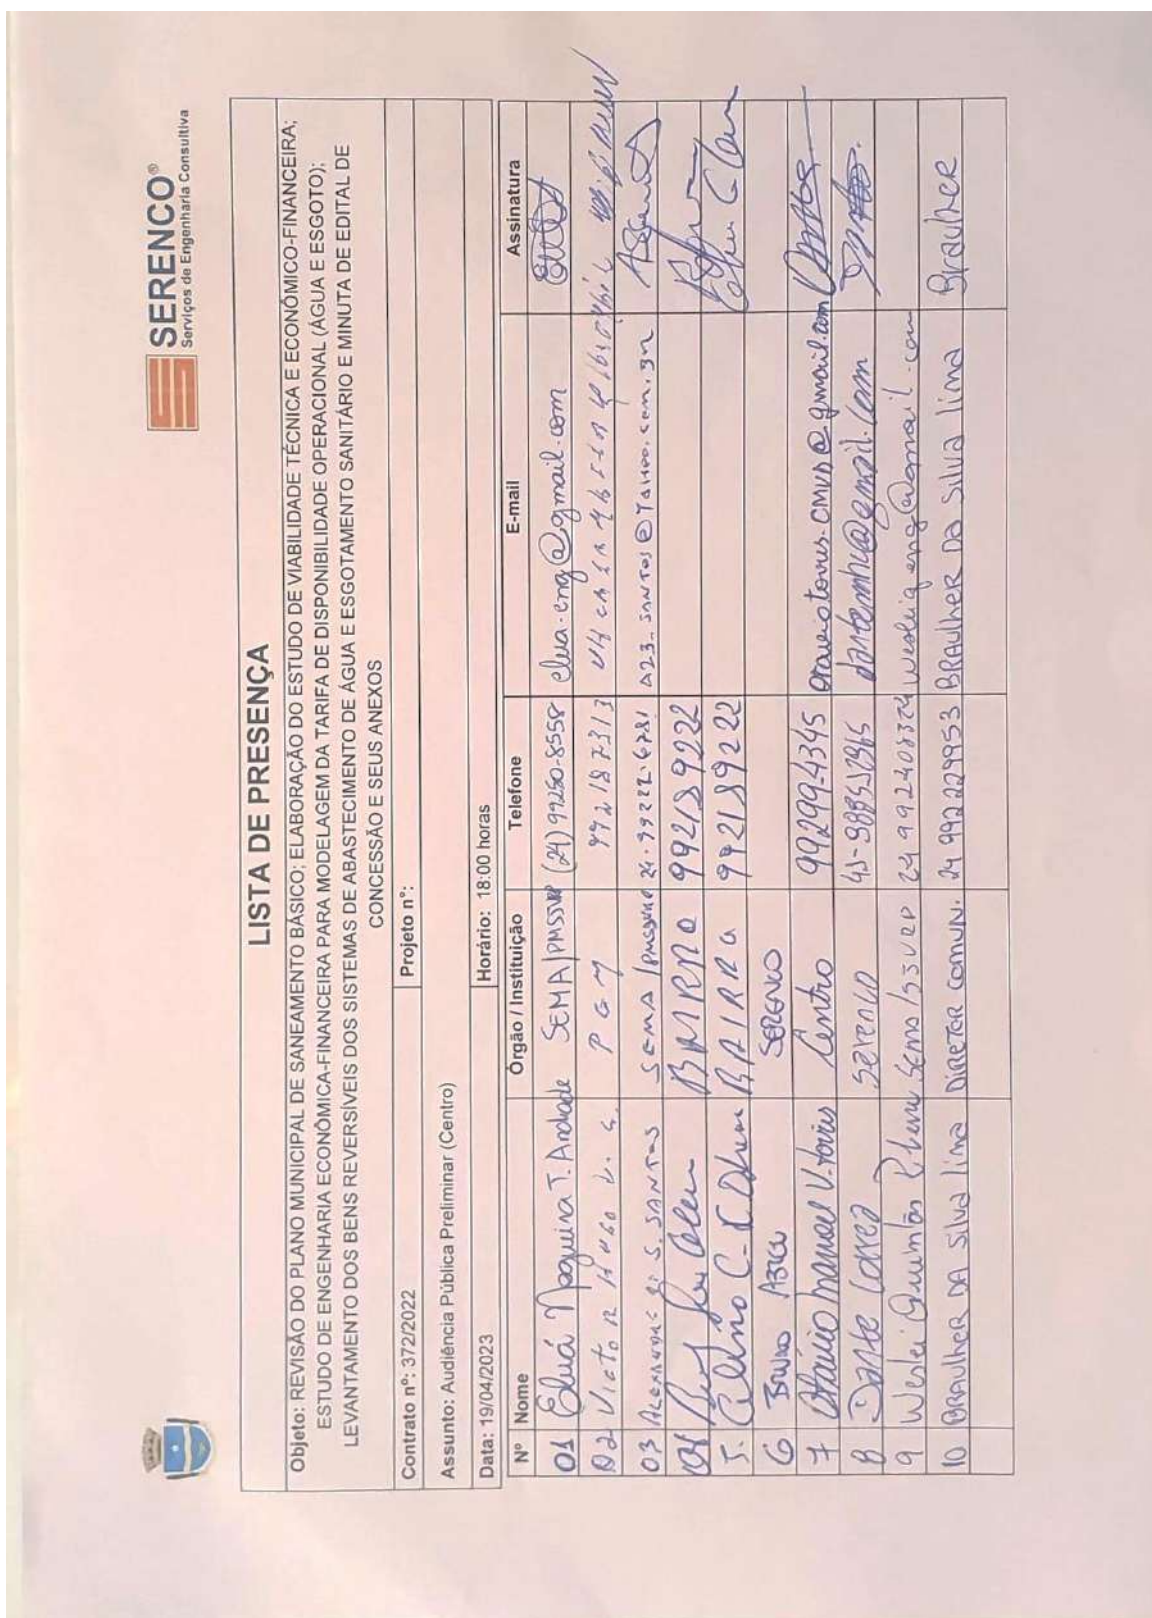 SERENCO®
Serviços de Engenharia Consultiva
LISTA DE PRESENÇA
Objeto: REVISÃO DO PLANO MUNICIPAL DE SANEAMENTO BÁSICO; ELABORAÇÃO DO ESTUDO DE VIABILIDADE TÉCNICA E ECONÔMICO-FINANCEIRA;
ESTUDO DE ENGENHARIA ECONÔMICA-FINANCEIRA PARA MODELAGEM DA TARIFA DE DISPONIBILIDADE OPERACIONAL (ÁGUA E ESGOTO);
LEVANTAMENTO DOS BENS REVERSÍVEIS DOS SISTEMAS DE ABASTECIMENTO DE ÁGUA E ESGOTAMENTO SANITÁRIO E MINUTA DE EDITAL DE
CONCESSÃO E SEUS ANEXOS
Contrato nº: 372/2022 Projeto nº:
Assunto: Audiência Pública Preliminar (Centro)
Data: 19/04/2023 Horário: 18:00 horas
Nº Nome Órgão / Instituição Telefone E-mail Assinatura
01 Eluá Nogueira T. Andrade SEMA/PMSSVR (24) 99250-8558 elua.eng@gmail.com
02 Victor Hugo L. G. PGM 992187313
03 S. SANTOS SEMA 24.99222.6781
04 BAIRRO 992189222
5. BAIRRO 992189222
6 Bruno SERENCO
7 Otavio Manoel V. Torres Centro 99299-4345 otaviotorres.CMVR@gmail.com
8 Dante Serenco
9 Weslei Quintas 24 992408324 wesleiqeng@gmail.com
10 BRAULHER DA SILVA lima DIRETOR COMUN. 24 992229953 BRAULHER DA SILVA lima Braulher